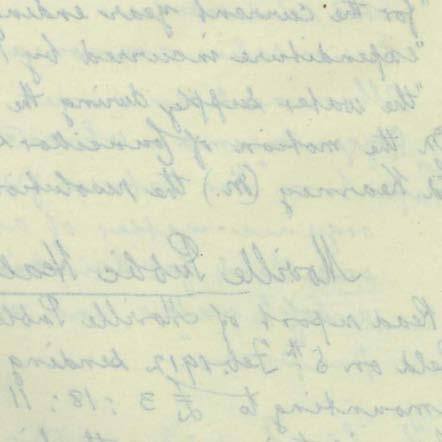 "for the current year ending
"expenditure incurred by
"the water supply during the
the motion of Councillor
Kearney (M.) the resolution
Moville Public Heal
Read report of Moville Publi
eld on 5th Feb. 1912 sending
mounting to £3:18:11